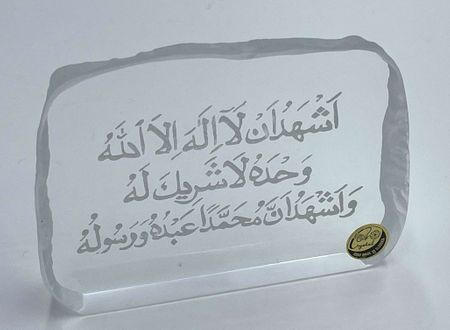 اَشْهَدُ اَنْ لَآ اِلٰهَ اِلَّا اللّٰهُ
وَحْدَهُ لَا شَرِيكَ لَهُ
وَ اَشْهَدُ اَنَّ مُحَمَّدًا عَبْدُهُ وَ رَسُولُهُ
Crystal